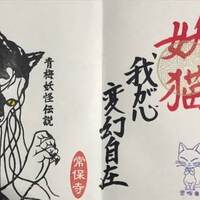 妖猫
我が心
変幻自在
青梅妖怪伝説
常保寺